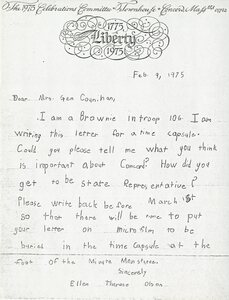 The 1975 Celebrations Committee • Townhouse • Concord, Mass
1775
Liberty
1975
Feb. 9, 1975
Dear Mrs. Gen Counihan,
I am a Brownie in troop 106 I am
writing this letter for a time capsule.
Could you please tell me what you think
is important about Concord? How did you
get to be state Representative?
Please write back before March 1st
so that there will be time to put
your letter on microfilm to be
buried in the time capsule at the
foot of the Minute Man statue.
Sincerely
Ellen Therese Olson